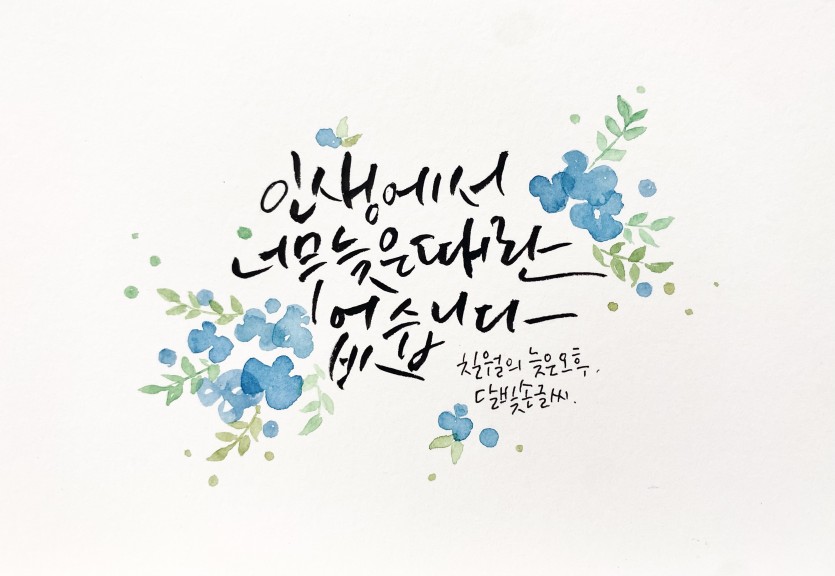 인생에서
너무 늦은 때란
없습니다
칠월의 늦은오후,
달빛손글씨.